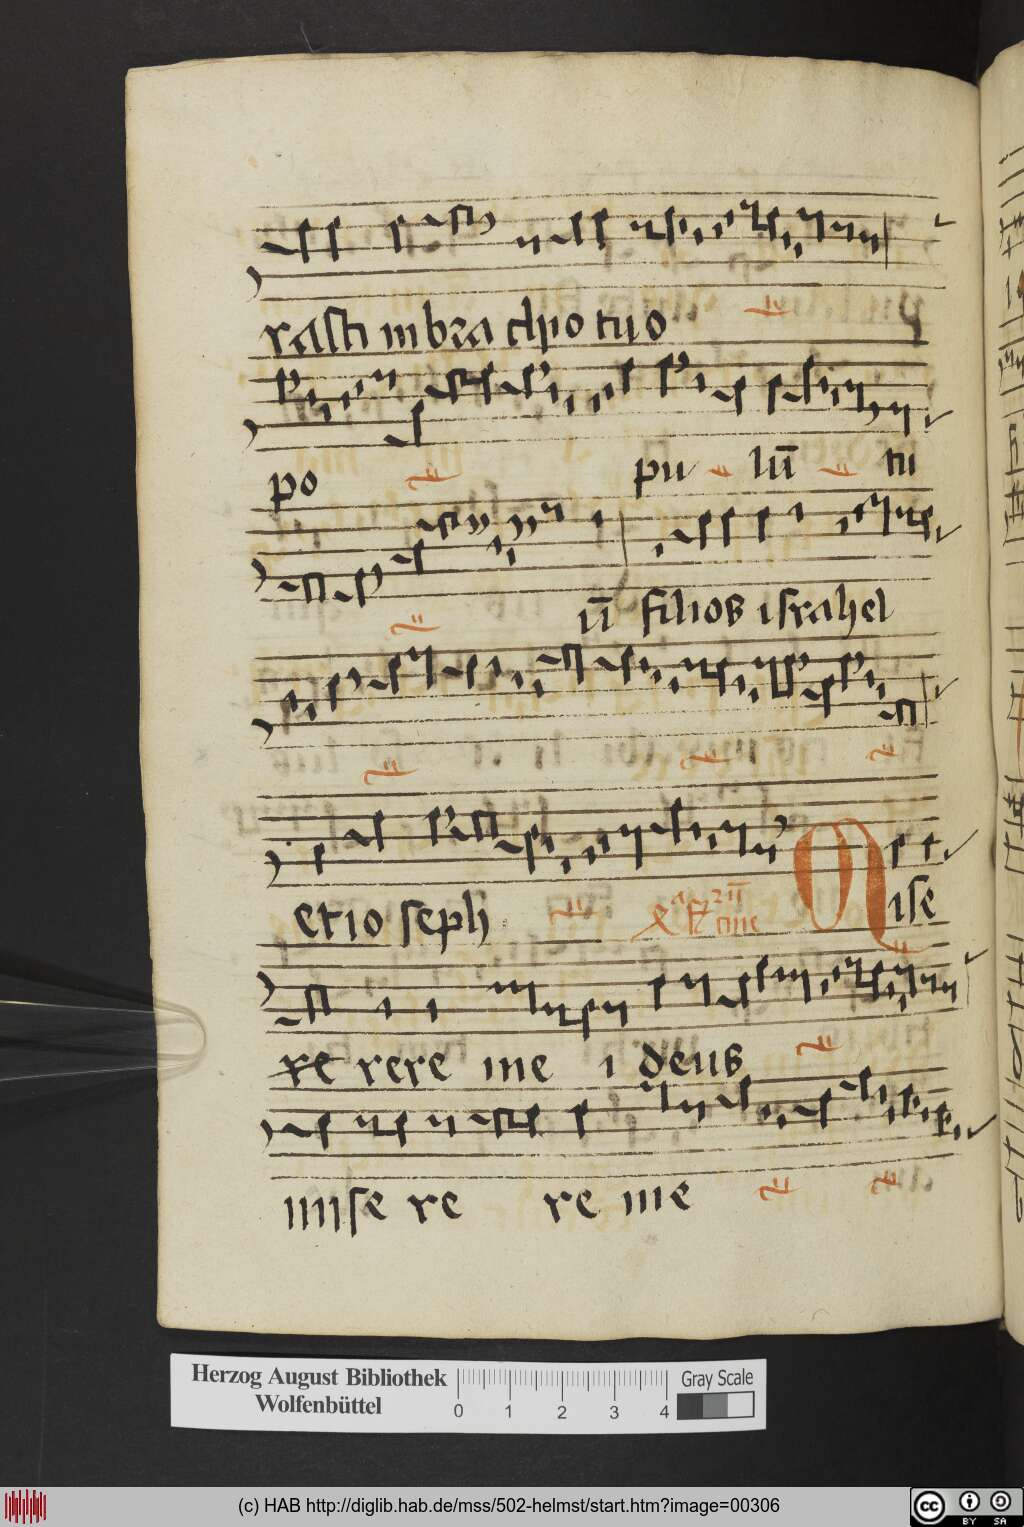 rasti in bra chio tuo
po pu lū tu
ū filios israhel
et io seph Mise
re rere me i deus
mise re re me
Herzog August Bibliothek
Wolfenbüttel
0 1 2 3 4
Gray Scale
(c) HAB http://diglib.hab.de/mss/502-helmst/start.htm?image=00306
cc BY SA